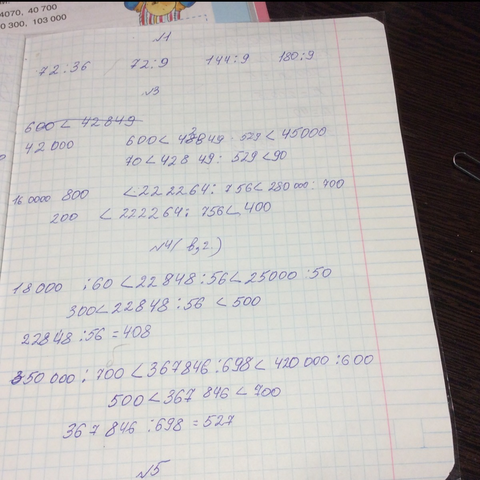 4070, 40 700
0 300, 103 000
№1
72:36 72:9 144:9 180:9
№3
600 < 42849
42 000 600 < 42849 : 529 < 45000
70 < 428 49 : 529 < 90
16.0000 800 < 222264 : 756 < 280 000 : 700
200 < 222264 : 756 < 400
№4 (в, г)
18 000 : 60 < 22 848 : 56 < 25000 : 50
300 < 22848 : 56 < 500
22848 : 56 = 408
350 000 : 700 < 367846 : 698 < 420 000 : 600
500 < 367 846 < 700
367 846 : 698 = 527
№5